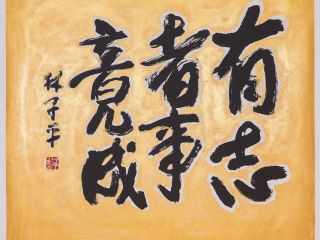 有志
者事
竟成
林子平